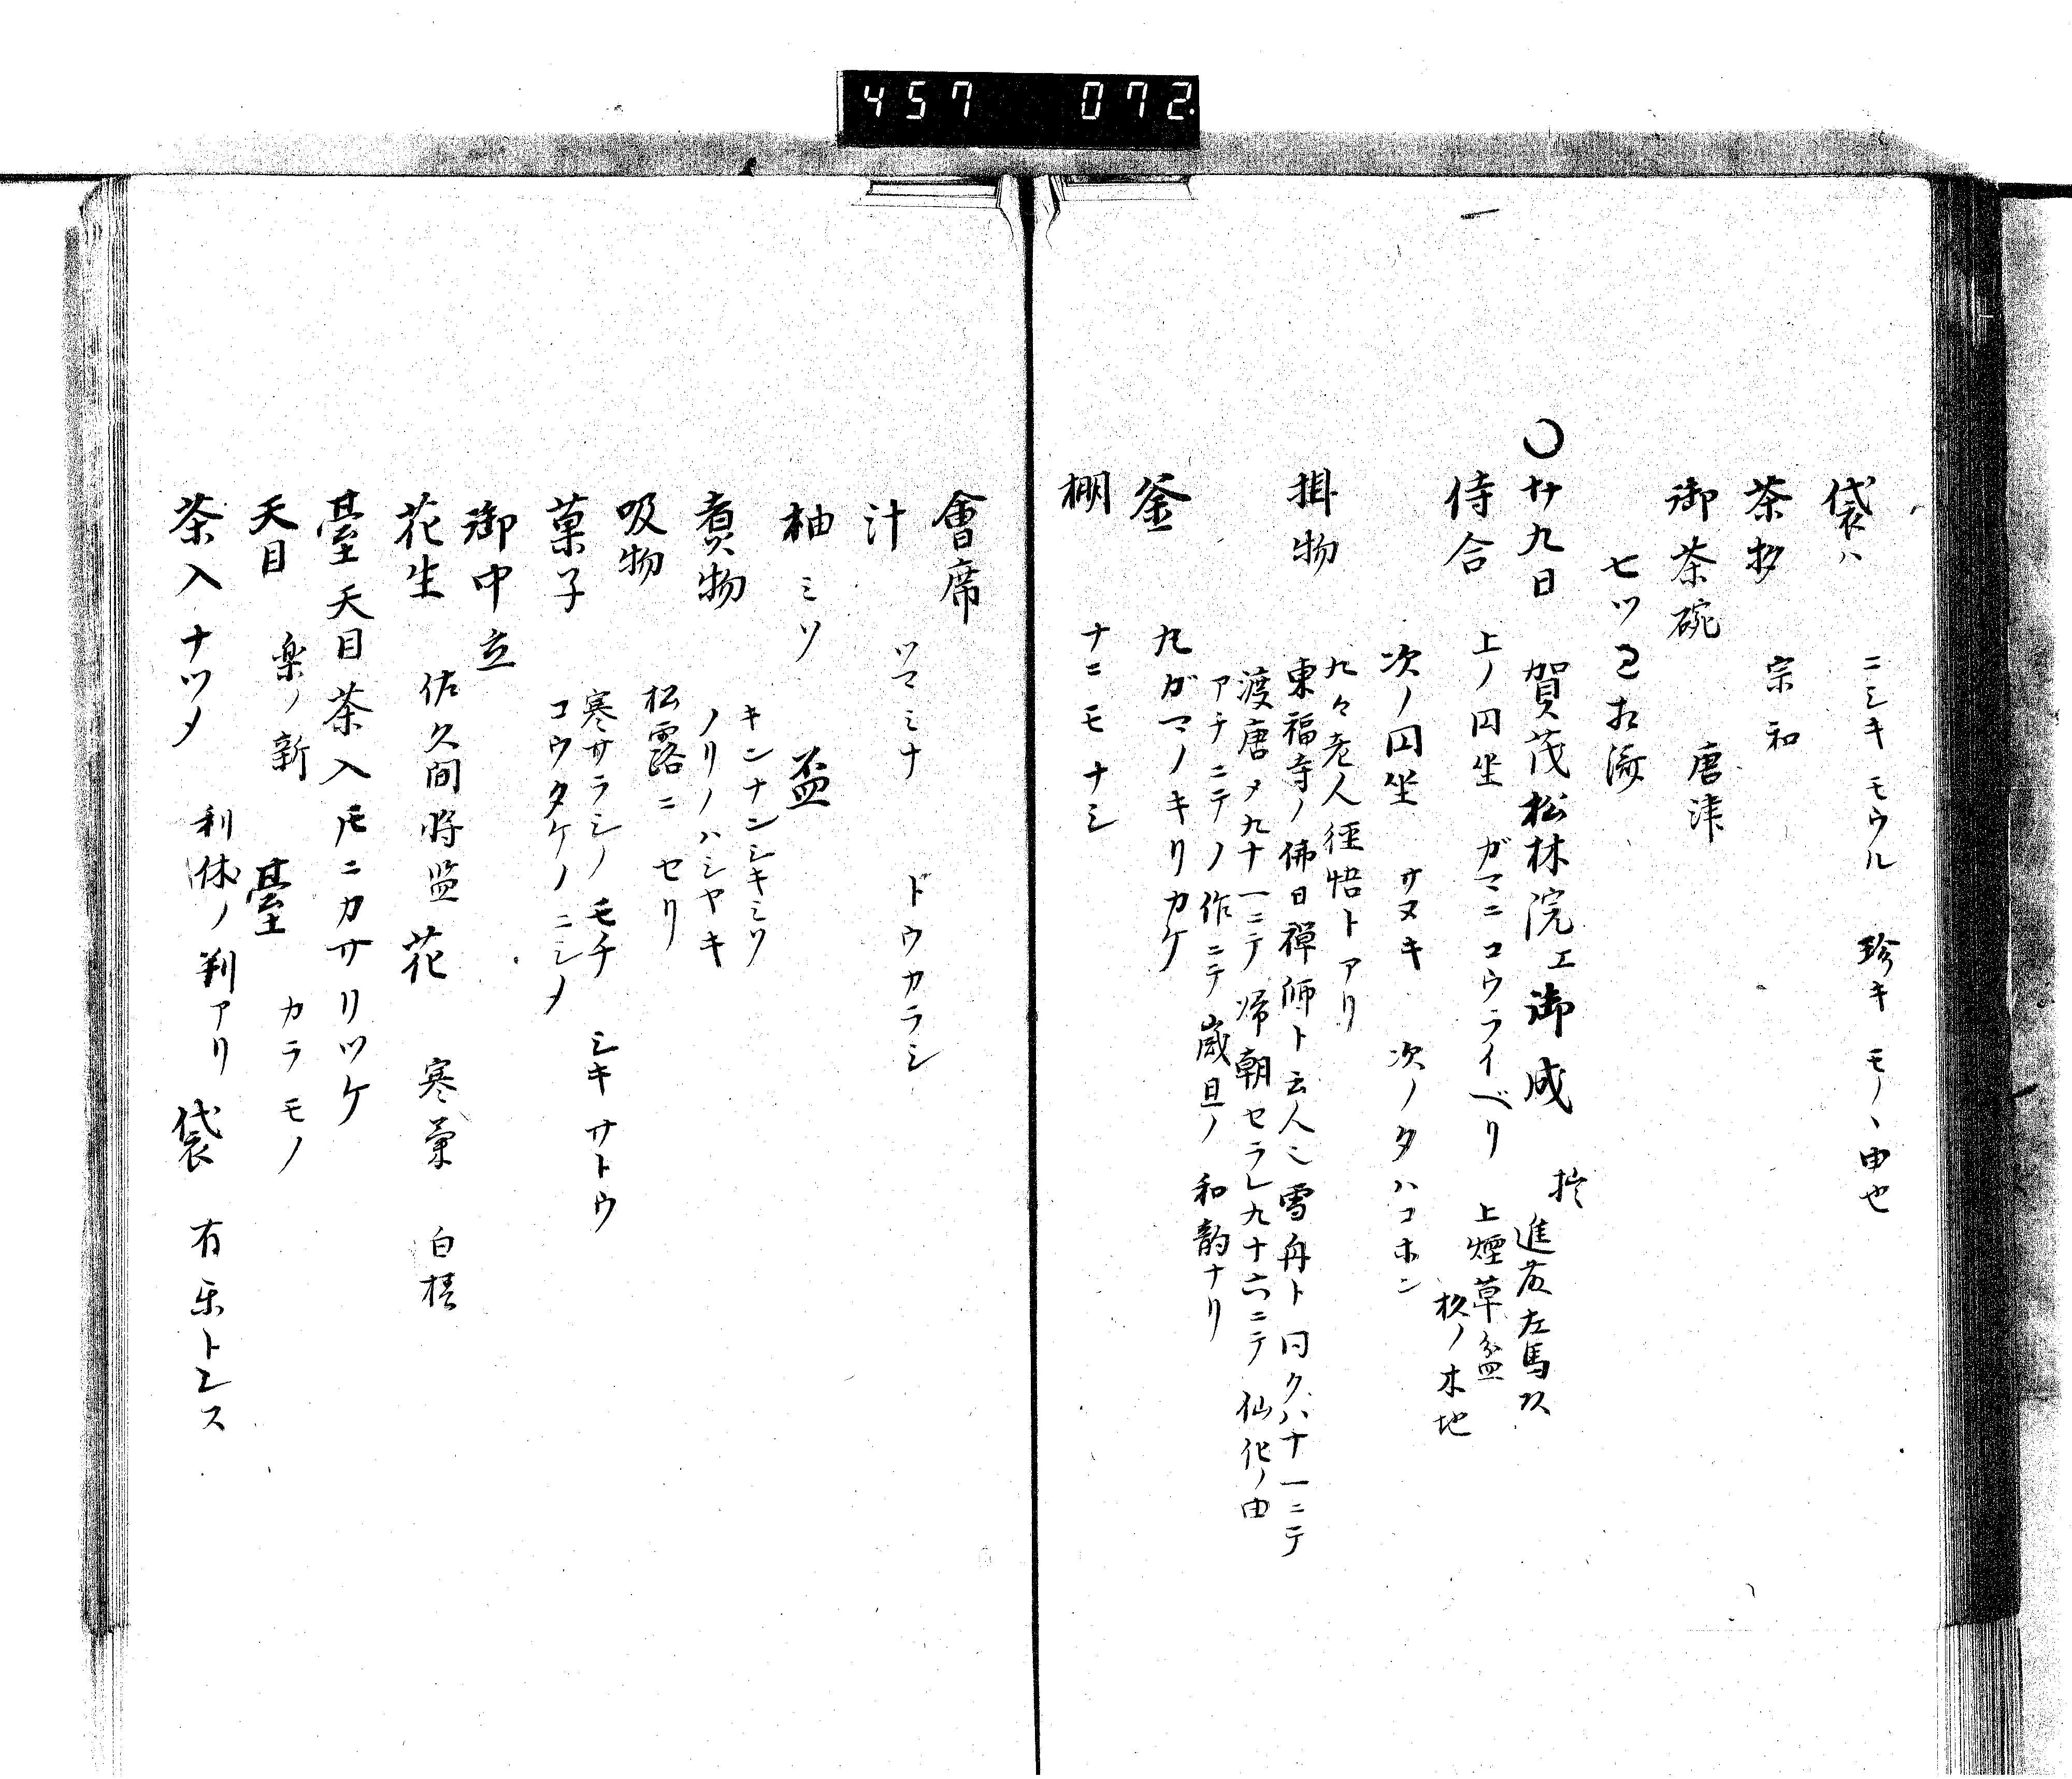 457 072.
袋ハ ニシキ モウル 珍キ モノヽ由也
茶杓 宗和
御茶碗 唐津
七ツ
〇廿九日 賀茂松林院エ御成
進藤左馬
侍合 上ノ円坐 ガマニコウライベリ 上煙草盆
杉ノ木地
次ノ円坐 サヌキ 次ノタハコホン
掛物 九々老人徑悟トアリ
東福寺ノ佛日禅師ト云人 雪舟ト同ク八十一ニテ
渡唐 九十一ニテ帰朝セラレ九十六ニテ 仙化ノ由
アチニテノ作ニテ 歳旦ノ和韵ナリ
釜 丸ガマノキリカケ
棚 ナニモナシ
會席
汁 ツマミナ ドウカラシ
柚ミソ 盃
煮物 キンナンシキミソ
ノリノハシヤキ
吸物 松露ニセリ
菓子 寒サラシノモチ シキサトウ
コウタケノニシメ
御中立
花生 佐久間将監 花 寒菊 白椿
臺天目茶入 ニカサリツケ
天目 楽ノ新 臺 カラモノ
茶入 ナツメ 利休ノ判アリ 袋 有楽トンス